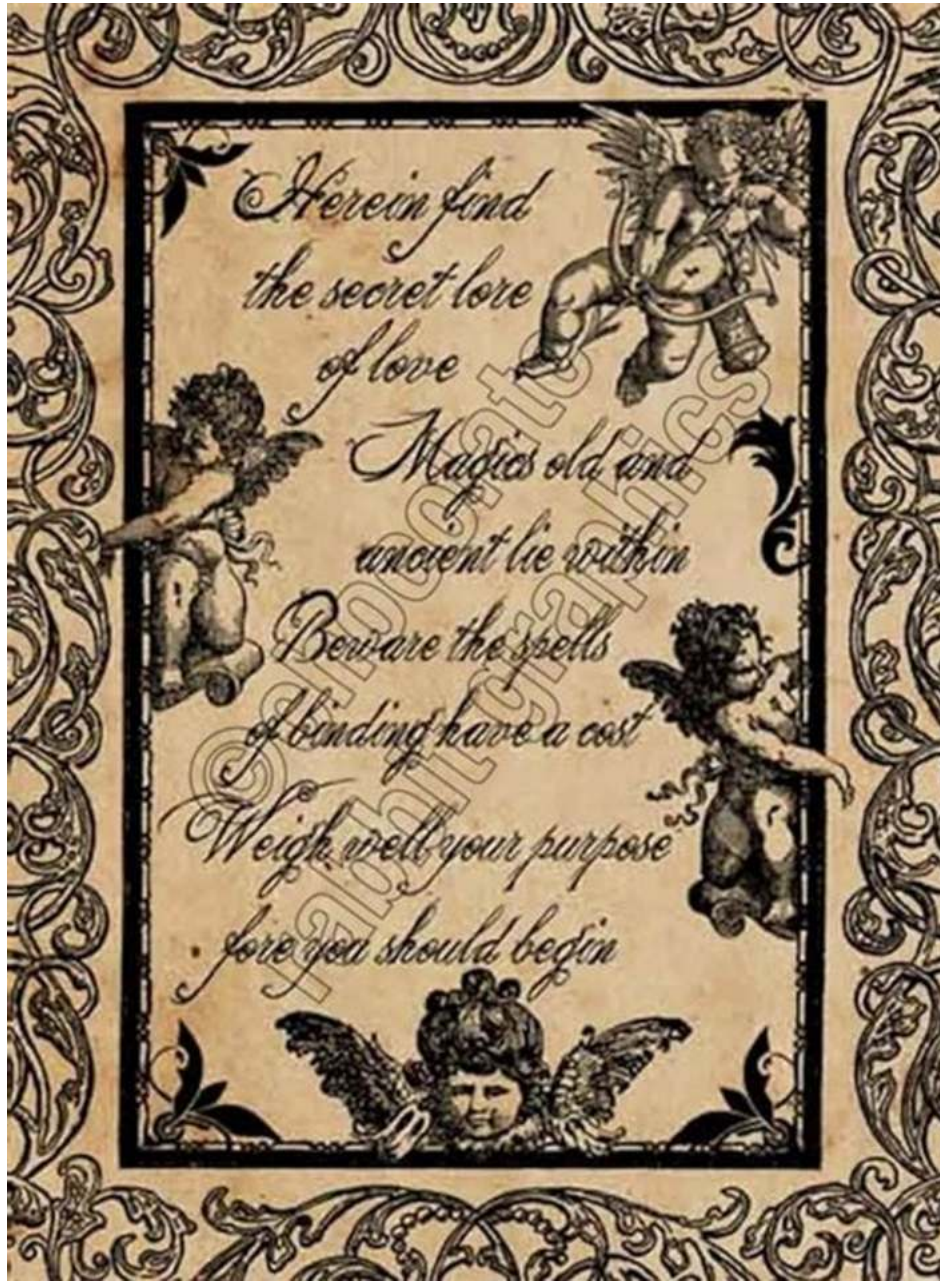 Herein find
the secret lore
of love
Magics old and
ancient lie within
Beware the spells
of binding have a cost
Weigh well your purpose
fore you should begin
rabbit graphics